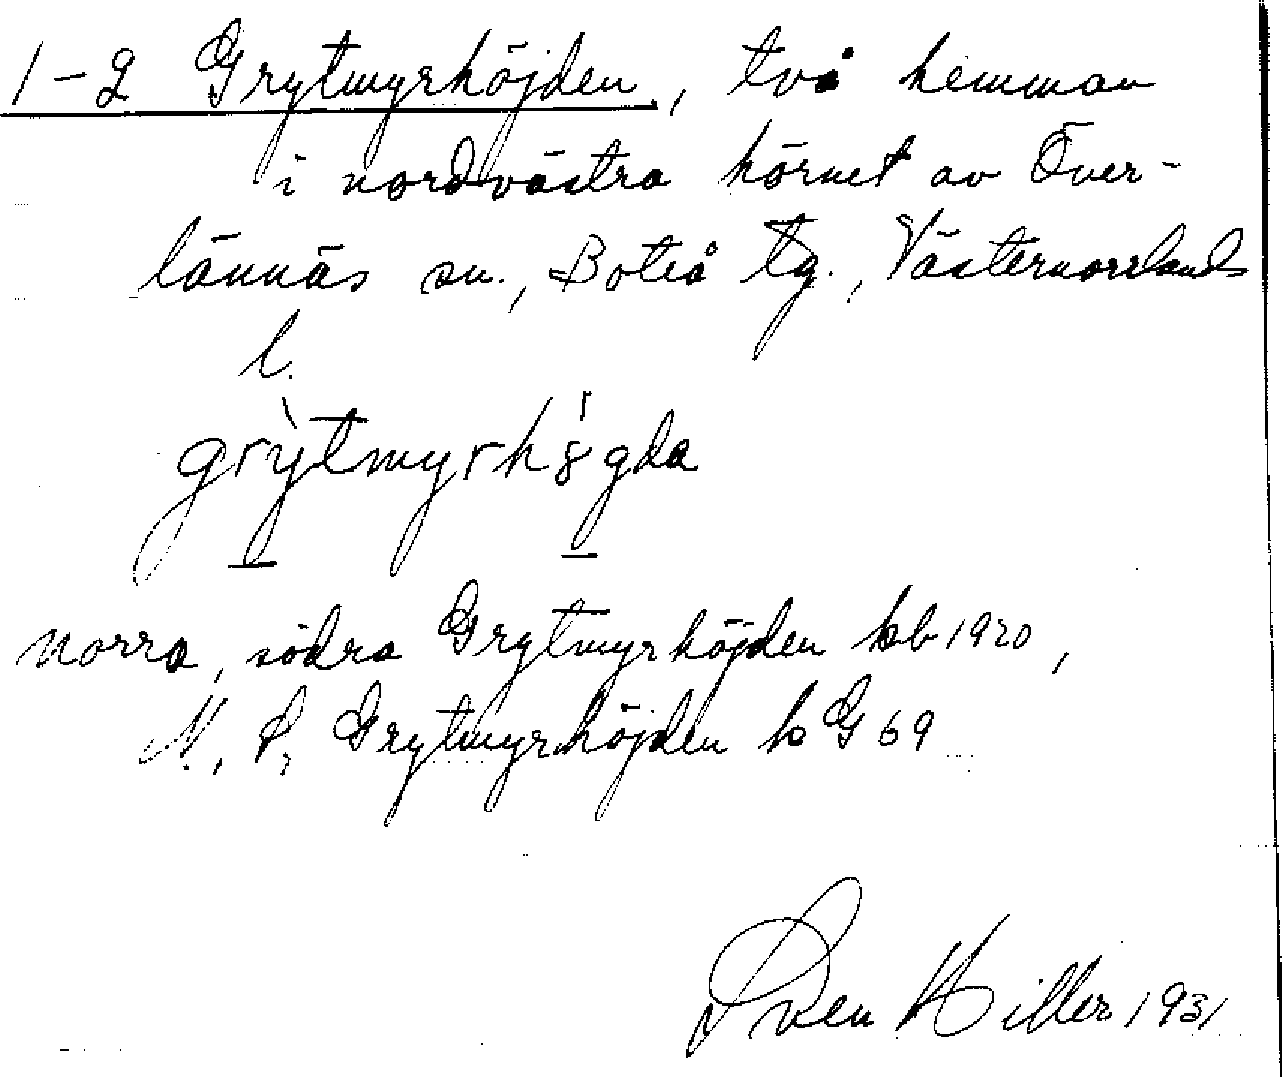 1-2 Grytmyrhöjden, två hemman
i nordvästra hörnet av Över-
lännäs sn., Boteå tg., Västernorrlands
l.
grỳtmyrhögda
norra, södra Grytmyrhöjden kb 1920,
N., S., Grytmyrhöjden k G 69
Sven Hiller 1931